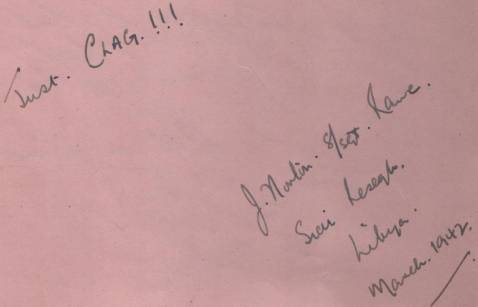 Just. CLAG.!!!
J. Norton. S/Sgt. Rame.
Sidi Resegh.
Libya.
March. 1942.